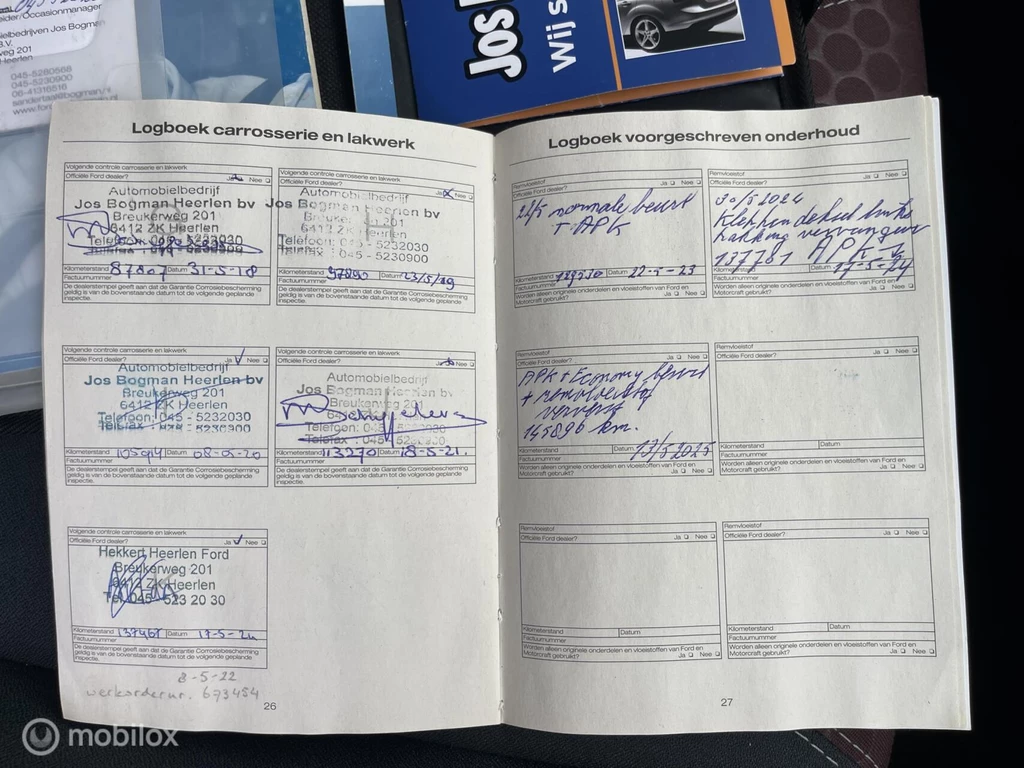 eider/Occasionmanager
elbedrijven Jos Bogman
B.V.
weg 201
Heerlen
045-5280568
045-5230900
06-41316516
Jos
Wij s
Logboek carrosserie en lakwerk
Volgende controle carrosserie en lakwerk
Officiële Ford dealer? Ja Nee
Automobielbedrijf
Jos Bogman Heerlen bv
Breukerweg 201
6412 ZK Heerlen
Telefoon: 045 - 5232030
Kilometerstand 87807 Datum 31-5-18
Factuurnummer
De dealerstempel geeft aan dat de Garantie Corrosiebescherming
geldig is van de bovenstaande datum tot de volgende geplande
inspectie.
Volgende controle carrosserie en lakwerk
Officiële Ford dealer? Ja Nee
Automobielbedrijf
Jos Bogman Heerlen bv
201
Heerlen
045 - 5232030
045 - 5230900
Kilometerstand Datum 23/5/19
Factuurnummer
De dealerstempel geeft aan dat de Garantie Corrosiebescherming
geldig is van de bovenstaande datum tot de volgende geplande
inspectie.
Volgende controle carrosserie en lakwerk
Officiële Ford dealer? Ja Nee
Automobielbedrijf
Jos Bogman Heerlen bv
Breukerweg 201
6412 ZK Heerlen
Telefoon: 045 - 5232030
Kilometerstand Datum 08-05-20
Factuurnummer
De dealerstempel geeft aan dat de Garantie Corrosiebescherming
geldig is van de bovenstaande datum tot de volgende geplande
inspectie.
Volgende controle carrosserie en lakwerk
Officiële Ford dealer? Ja Nee
Automobielbedrijf
Jos Bogman Heerlen bv
Breukerweg 201
Heerlen
Kilometerstand 113270 Datum 18-5-21.
Factuurnummer
De dealerstempel geeft aan dat de Garantie Corrosiebescherming
geldig is van de bovenstaande datum tot de volgende geplande
inspectie.
Volgende controle carrosserie en lakwerk
Officiële Ford dealer? Ja Nee
Hekkert Heerlen Ford
Breukerweg 201
6412 ZK Heerlen
Tel. 045 - 523 20 30
Kilometerstand Datum 17-5-24
Factuurnummer
De dealerstempel geeft aan dat de Garantie Corrosiebescherming
geldig is van de bovenstaande datum tot de volgende geplande
inspectie.
8-5-22
werkordernr. 673454
26
Logboek voorgeschreven onderhoud
Remvloeistof
Officiële Ford dealer? Ja Nee
22/5 normale beurt
+ APK
Kilometerstand Datum 22-5-23
Factuurnummer
Worden alleen originele onderdelen en vloeistoffen van Ford en
Motorcraft gebruikt? Ja Nee
Remvloeistof
Officiële Ford dealer? Ja Nee
30/5 2024
Kleppendeksel
pakking vervangen
137781 APK
Kilometerstand Datum 17-5-24
Factuurnummer
Worden alleen originele onderdelen en vloeistoffen van Ford en
Motorcraft gebruikt? Ja Nee
Remvloeistof
Officiële Ford dealer? Ja Nee
APK + Economy beurt
+ remvloeistof
ververst
145896 km.
Kilometerstand Datum 17/5 2025
Factuurnummer
Worden alleen originele onderdelen en vloeistoffen van Ford en
Motorcraft gebruikt? Ja Nee
Remvloeistof
Officiële Ford dealer? Ja Nee
Kilometerstand Datum
Factuurnummer
Worden alleen originele onderdelen en vloeistoffen van Ford en
Motorcraft gebruikt? Ja Nee
Remvloeistof
Officiële Ford dealer? Ja Nee
Kilometerstand Datum
Factuurnummer
Worden alleen originele onderdelen en vloeistoffen van Ford en
Motorcraft gebruikt? Ja Nee
Remvloeistof
Officiële Ford dealer? Ja Nee
Kilometerstand Datum
Factuurnummer
Worden alleen originele onderdelen en vloeistoffen van Ford en
Motorcraft gebruikt? Ja Nee
27
mobilox